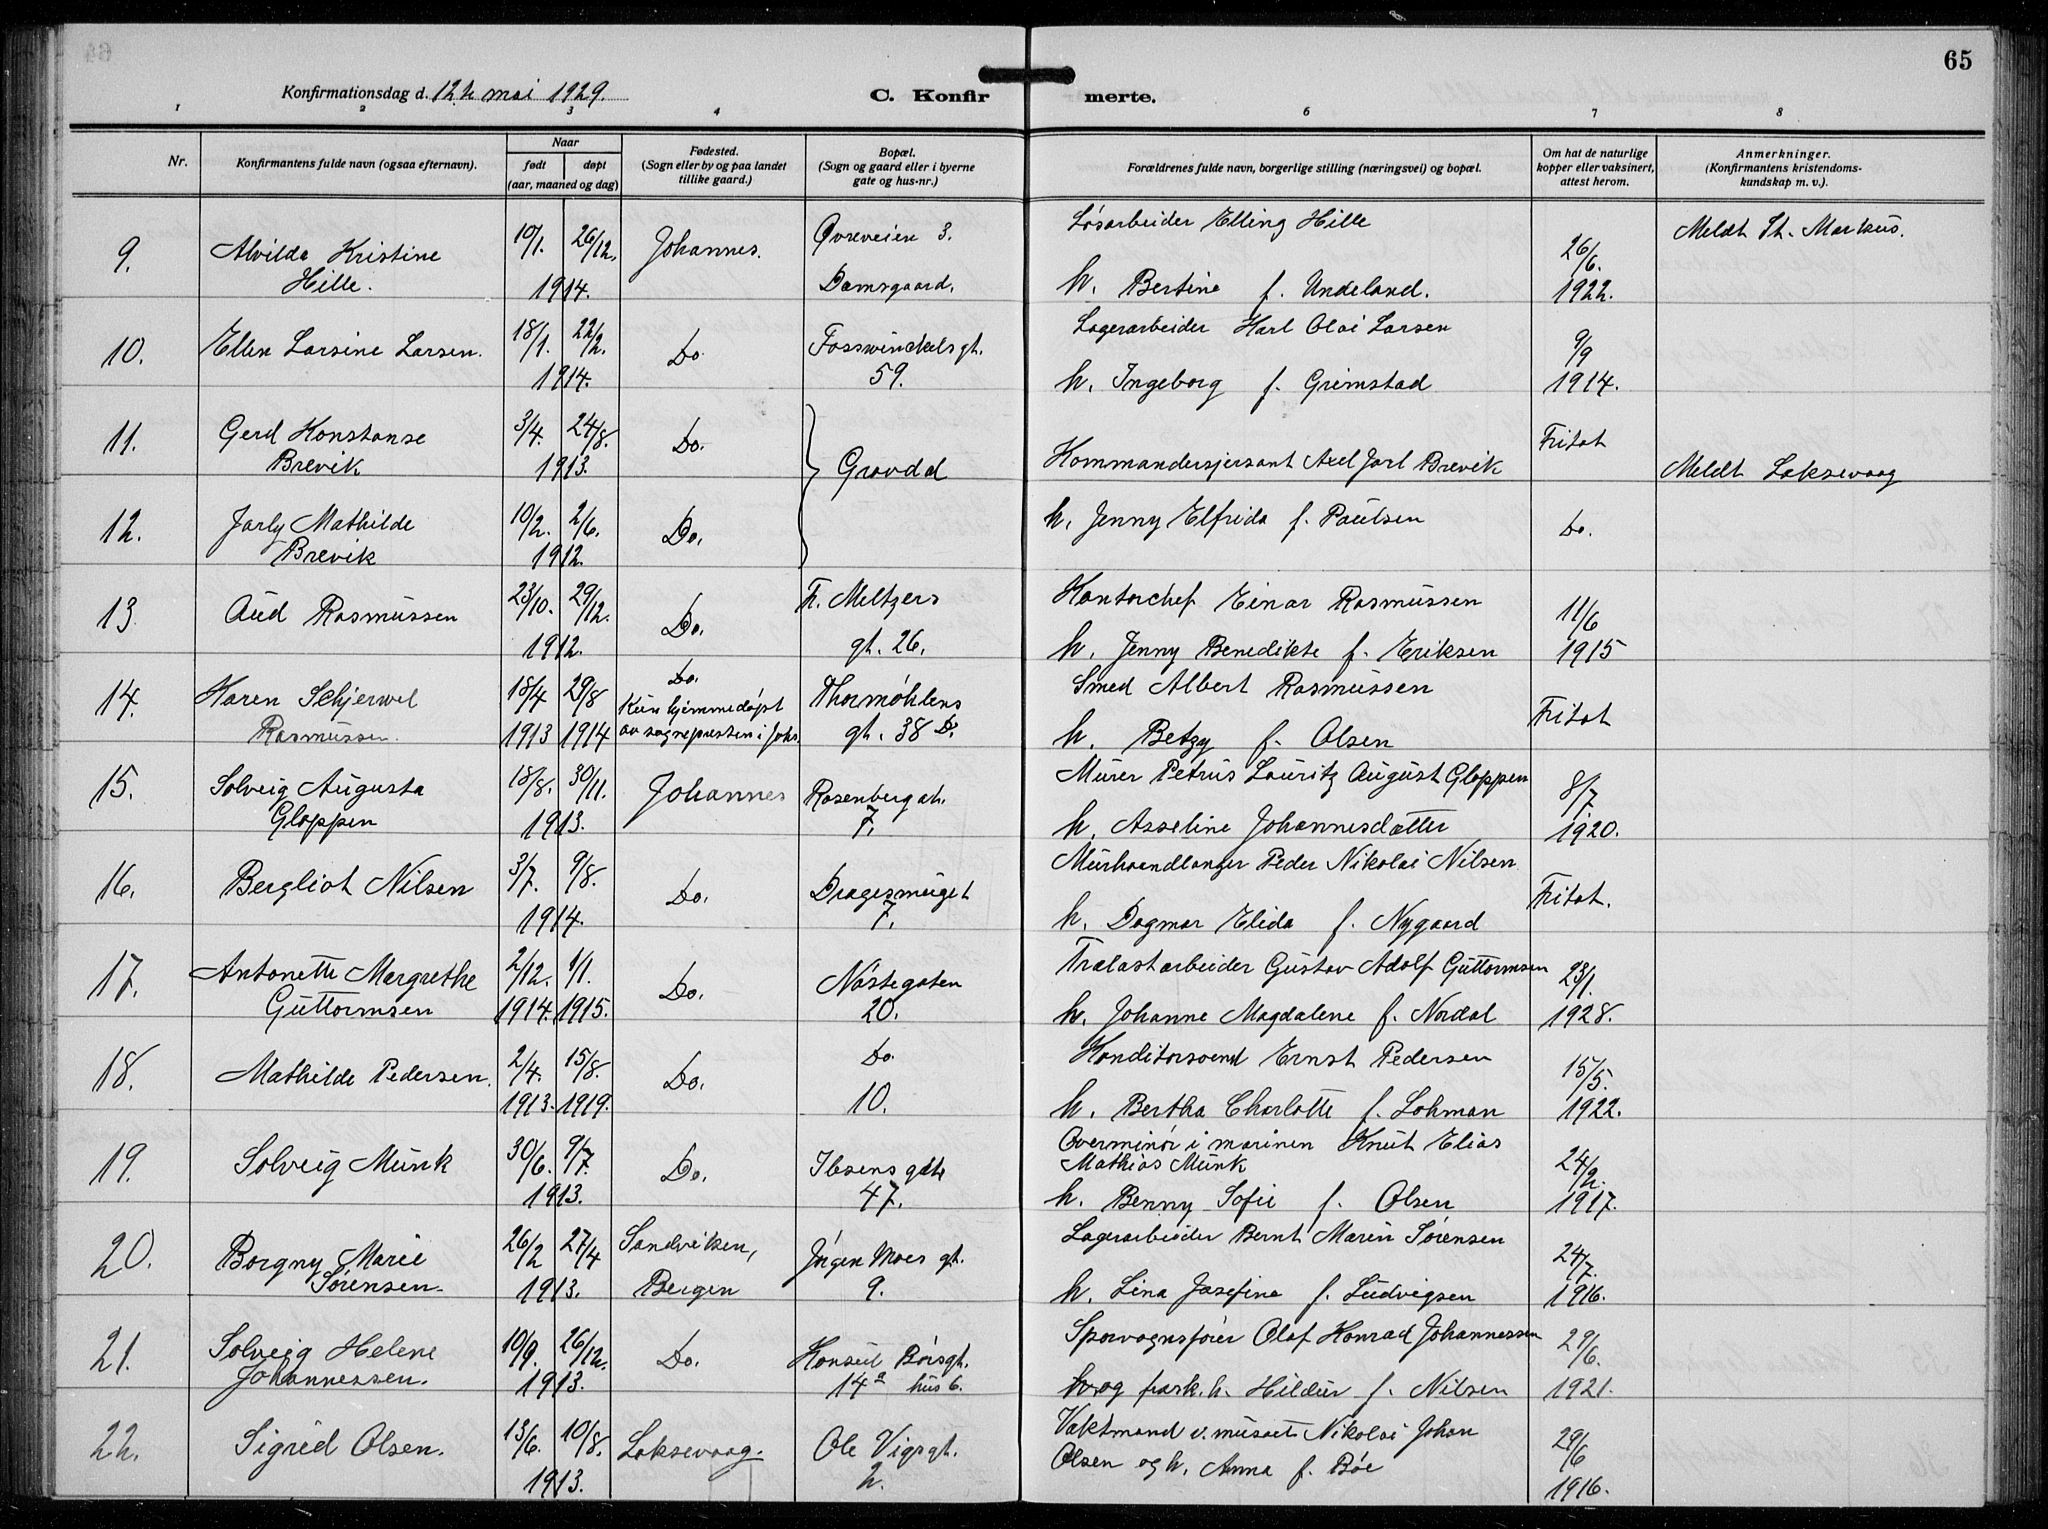 65
Konfirmationsdag d. 12te mai 1929.
C. Konfirmerte.
1 2 3 4 6 7 8
Nr.
Konfirmantens fulde navn (ogsaa efternavn).
Naar
født døpt
(aar, maaned og dag)
Fødested.
(Sogn eller by og paa landet
tillike gaard.)
Bopæl.
(Sogn og gaard eller i byerne
gate og hus-nr.)
Forældrenes fulde navn, borgerlige stilling (næringsvei) og bopæl.
Om hat de naturlige
kopper eller vaksinert,
attest herom.
Anmerkninger.
(Konfirmantens kristendoms-
kundskap m. v.).
9. Alvilda Kristine 10/1. 26/12. Johannes. Øvreveien 3. Løsarbeider Elling Hille 26/6. Meldt St. Markus.
Hille. 1914. Damsgaard. h. Bertine f. Undeland. 1922.
10. Ellen Larsine Larsen. 18/1. 22/2. Do. Fosswinckelsgt. Lagerarbeider Karl Olai Larsen 9/9
1914. 59. h. Ingeborg f. Grimstad 1914.
11. Gerd Konstanse 3/4. 24/8. Do. Fritat
Brevik 1913. Gravdal Kommandersjersant Axel Jarl Brevik Meldt Laksevaag
12. Jarly Mathilde 10/2. 2/6. Do. h. Jenny Elfrida f. Paulsen Do.
Brevik 1912.
13. Aud Rasmussen 23/10. 29/12. Do. F. Meltzers Kontorchef Einar Rasmussen 11/6
1912. gt. 26. h. Jenny Benedikte f. Eriksen 1915
14. Karen Schjerwel 18/4 29/8 Do. Thormøhlens Smed Albert Rasmussen Fritat
Kun hjemmedøpt
Rasmussen. 1913 1914 av sogneprestin i Johs. gt. 38 D. h. Betzy f. Olsen
15. Solveig Augusta 18/8. 30/11. Johannes Rosenberggt. Murer Petrus Lauritz August Gloppen 8/7
Gloppen 1913. 7. h. Asseline Johannesdatter 1920.
16. Bergliot Nilsen 3/7. 9/8. Do. Dragesmuget Murhaandlanger Peder Nikolai Nilsen Fritat.
1914. 7. h. Dagmar Elida f. Nygaard
17. Antonette Margrethe 2/12. 1/1. Do. Nøstegaten Trælastarbeider Gustav Adolf Guttormsen 23/1.
Guttormsen 1914. 1915. 20. h. Johanne Magdalene f. Nordal 1928.
18. Mathilde Pedersen. 2/4. 15/8. Do. Do. Konditorsvend Ernst Pedersen 15/5.
1913. 1919. 10. h. Bertha Charlotte f. Lohman 1922.
19. Solveig Munk 30/6. 9/7. Do. Ibsens gate Overminør i marinen Knut Elias
Mathias Munk 24/2.
1913. 47. h. Benny Sofie f. Olsen 1917.
20. Borgny Marie 26/2 27/4 Sandviken, Jørgen Moes gt. Lagerarbeider Bernt Marin Sørensen 24/7.
Sørensen. 1913. Bergen 9. h. Lina Josefine f. Ludvigsen 1916.
21. Solveig Helene 10/9. 26/12. Do. Konsul Børsgt. Sporvognsfører Olaf Konrad Johannessen 29/6.
Johannessen. 1913. 14a hus 6. og frask. h. Hildur f. Nilsen 1921.
22. Sigrid Olsen. 13/6. 10/8. Laksevaag. Ole Vigsgt. Vaktmand v. museet Nikolai Johan 29/6
1913. 2. Olsen og h. Anna f. Bøe 1916.